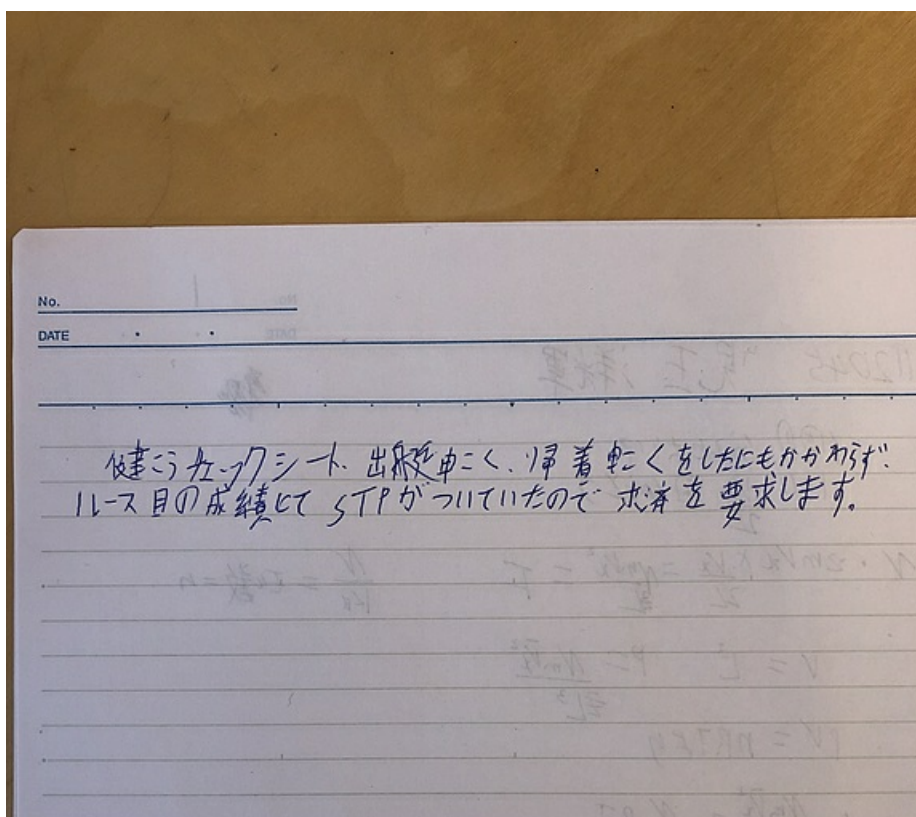 No.
DATE
健こうチェックシート、出艇申こく、帰着申こくをしたにもかかわらず、
1レース目の成績にて STPがついていたので 求済を要求します。